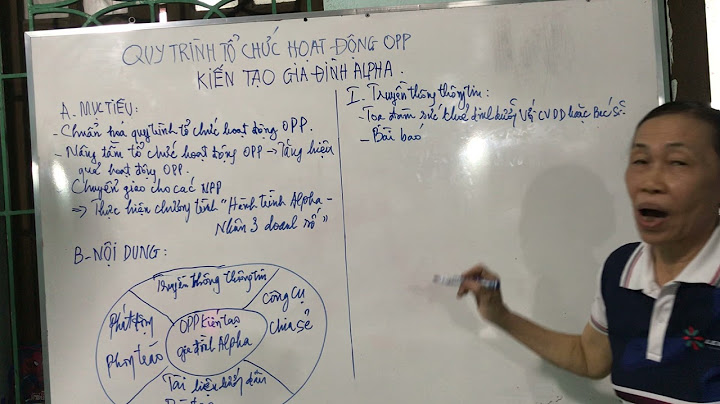 QUY TRÌNH TỔ CHỨC HOẠT ĐỘNG OPP
KIẾN TẠO GIA ĐÌNH ALPHA.
A. MỤC TIÊU:
- Chuẩn hoá quy trình tổ chức hoạt động OPP.
- Nâng tầm tổ chức hoạt động OPP → Tăng hiệu
quả hoạt động OPP.
Chuyển giao cho các NPP
=> Thực hiện chương trình "Hành trình Alpha -
Nhân 3 doanh số"
B-NỘI DUNG:
Truyền thông thông tin
Phát động
phong trào
OPP kiến tạo
gia đình Alpha
Công cụ
chia sẻ
Tài liệu hướng dẫn
I. Truyền thông thông tin:
- Toạ đàm sức khoẻ dinh dưỡng với CVDD hoặc Bác sĩ.
- Bài báo